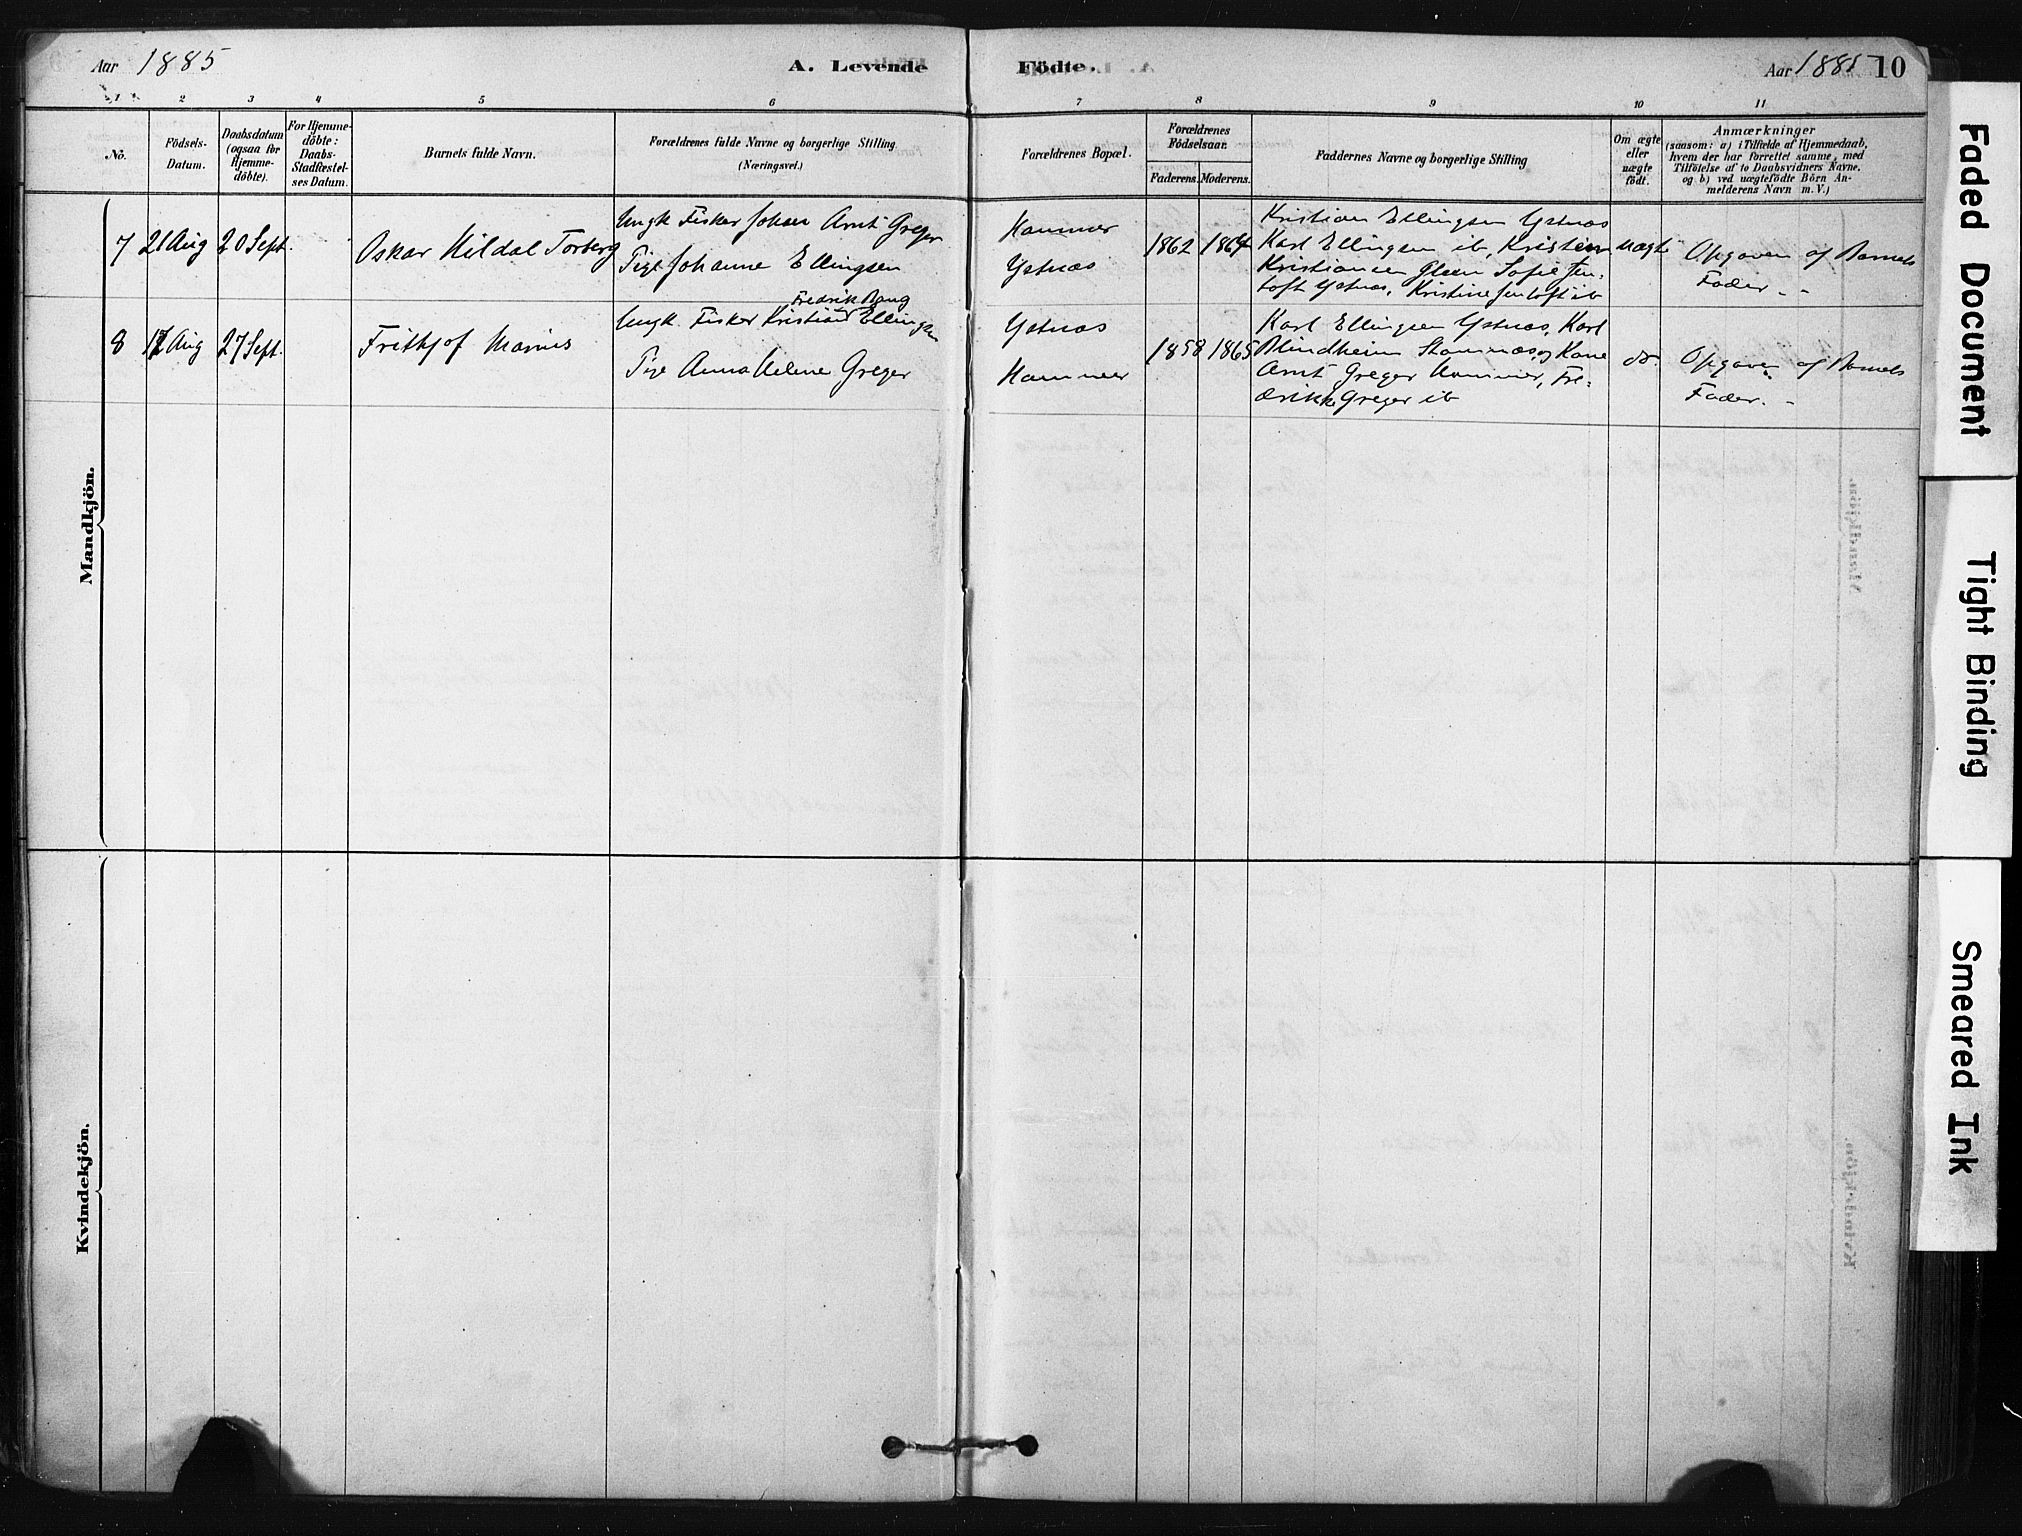 Aar 1885
A. Levende
Födte.
Aar 1885 10
1 2 3 4 5 6 7 8 9 10 11
No.
Födsels-
Datum.
Daabsdatum
(ogsaa for
Hjemme-
döbte).
For Hjemme-
döbte:
Daabs-
Stadfæstel-
ses Datum.
Barnets fulde Navn.
Forældrenes fulde Navne og borgerlige Stilling.
(Næringsvei.)
Forældrenes Bopæl.
Forældrenes
Födselsaar.
Faderens. Moderens.
Faddernes Navne og borgerlige Stilling
Om ægte
eller
uægte
födt.
Anmærkninger
(saasom: a) i Tilfælde af Hjemmedaab,
hvem der har forrettet samme, med
Tilföielse af to Daabsvidners Navne,
og b) ved uægtefödte Börn An-
melderens Navn m. V.)
Mandkjön.
7 21 Aug 20 Sept. Oskar Hildal Torberg
Ungk Fisker Johan Arnt Greger
Pige Johanne Ellingsen
Hammer
Ystnæs
1862 1864
Kristian Ellingsen Ystnæs
Karl Ellingsen ib, Kristian
Kristiansen Gleen Sofie Jen-
toft Ystnæs, Kristine Jentoft ib
uægte
Opgaven af Barnets
Fader.
8 12 Aug 27 Sept. Frithjof Marius
Fredrik Bang
Ungk. Fisker Kristian Ellingsen
Pige Anna Helene Greger
Ystnæs
Hammer
1858 1865
Karl Ellingsen Ystnæs, Karl
Blindheim Stamnæs, og Kone
Arnt Greger Hammer, Fre-
drikke Greger ib
do.
Opgaven af Barnets
Fader.
Kvindekjön.
Faded Document
Tight Binding
Smeared Ink